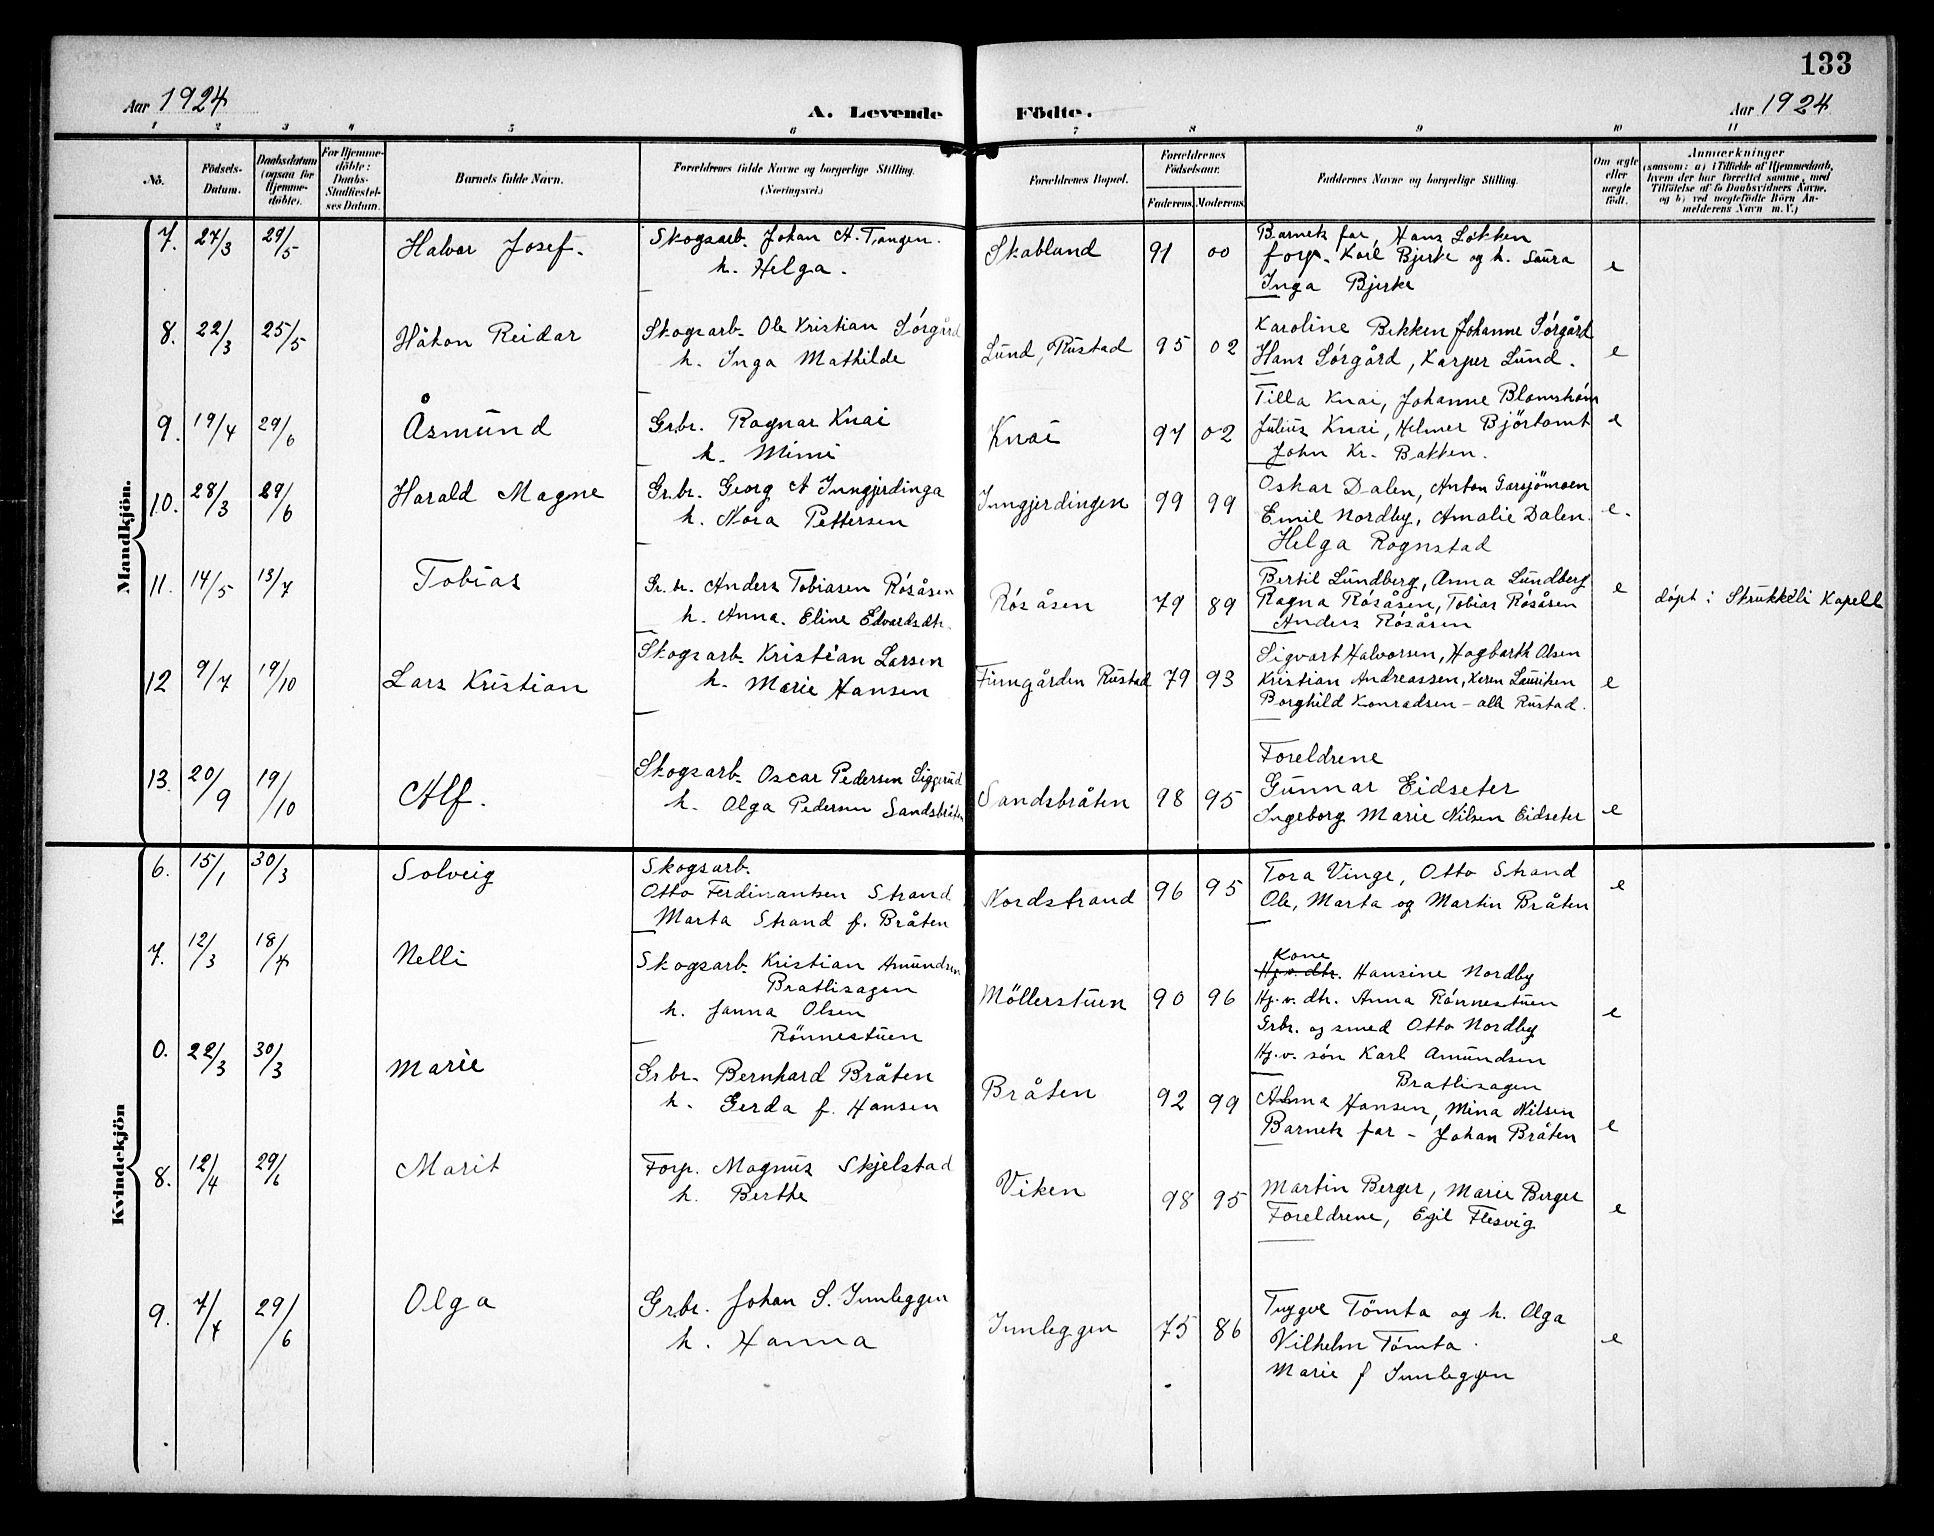 133
Aar 1924
A. Levende Födte.
Aar 1924
1 2 3 4 5 6 7 8 9 10 11
No.
Födsels-Datum.
Daabsdatum (ogsaa for Hjemme-döbte).
For Hjemme-döbte: Daabs-Stadfæstel-ses Datum.
Barnets fulde Navn.
Forældrenes fulde Navne og borgerlige Stilling. (Næringsvei.)
Forældrenes Bopæl.
Forældrenes Födselsaar.
Faderens. Moderens.
Faddernes Navne og borgerlige Stilling.
Om ægte eller uægte födt.
Anmærkninger
(saasom: a) i Tilfælde af Hjemmedaab,
hvem der har forrettet samme, med
Tilföielse af to Daabsvidners Navne.
og b) ved uægtefödte Börn An-
melderens Navn m. V.)
Mandkjön.
7. 27/3 29/5 Halvor Josef. Skogsarb. Johan A. Tangen. Skabland 91 00 Barnets far, Hans Løkken
h. Helga. forp. Karl Bjerke og h. Laura e
Inga Bjerke
8. 22/3 25/5 Håkon Reidar Skogsarb. Ole Kristian Sørgård Lund, Rustad 95 02 Karoline Bekken Johanne Sørgård
h. Inga Mathilde Hans Sørgård, Kasper Lund. e
9. 19/4 29/6 Åsmund Grbr. Ragnar Knai Knai 97 02 Tilla Knai, Johanne Blomshøm
h. Mimi Julius Knai, Helmer Bjørtomt e
John Kr. Bakken.
10. 28/3 29/6 Harald Magne Grbr. Georg A Inngjerdinga Inngjerdingen 99 99 Oskar Dalen, Anton Garsjömoen
h. Nora Pettersen Emil Nordby, Amalie Dalen. e.
Helga Rognstad
11. 14/5 13/7 Tobias Gr.br. Anders Tobiasen Røsåsen Røsåsen 79 89 Bertil Lundberg, Anna Lundberg e døpt i Strukkeli Kapell
h. Anna. Eline Edvardsdtr. Ragna Røsåsen, Tobias Røsåsen
Anders Røsåsen
12 9/7 19/10 Lars Kristian Skogsarb. Kristian Larsen Finngården Rustad 79 93 Sigvart Halvorsen, Hagbarth Olsen
h. Marie Hansen Kristian Andreassen, Karen Lauritsen e
Borghild Konradsen - alle Rustad.
13. 20/9 19/10 Alf. Skogsarb. Oscar Pedersen Siggerud Sandsbråten 98 95 Foreldrene
h. Olga Pedersen Sandsbråten Gunnar Eidseter
Ingeborg Marie Nilsen Eidseter e
Kvindekjön
6. 15/1 30/3 Solveig Skogsarb. Nordstrand 96 95 Tora Vinge, Otto Strand e
Otto Ferdinantsen Strand Ole, Marta og Martin Bråten
Marta Strand f. Bråten
7. 12/3 18/4 Nelli Skogsarb. Kristian Amundsen Möllerstuen 90 96 Kone
Bratlisagen Hj.v. dtr. Hansine Nordby
h. Janna Olsen Hj.v. dtr. Anna Rönnestuen e
Rönnestuen Grbr. og smed Otto Nordby
Hj.v. søn Karl Amundsen
Bratlisagen
0. 22/3 30/3 Marie Grbr. Bernhard Bråten Bråten 92 99 Alma Hansen, Mina Nilsen
h. Gerda f. Hansen Barnets far - Johan Bråten e
8. 12/4 29/6 Marit Forp. Magnus Skjelstad Viken 98 95 Martin Berger, Marie Berger
h. Berthe Foreldrene, Egil Flesvig e
9. 7/4 29/6 Olga Grbr. Johan S. Innleggen Innleggen 75 86 Trygve Tömta og h. Olga
h. Hanna Vilhelm Tömta. e
Marie f Innleggen